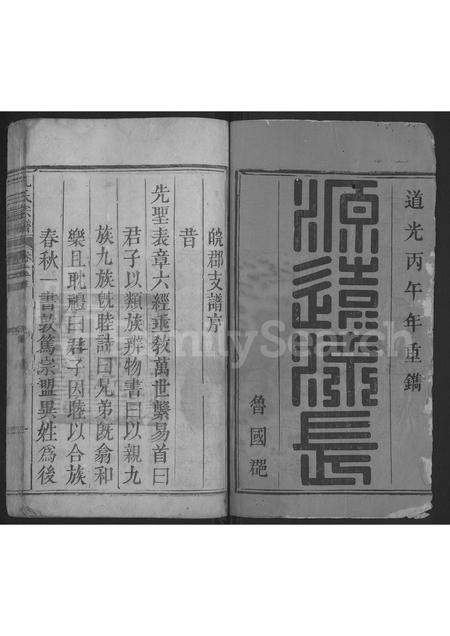 道光丙午年重鐫
源遠流長
魯國郡
皖郡支譜序
昔
先聖表章六經垂敎萬世繫易首曰
君子以類族辨物書曰以親九
族九族旣睦詩曰兄弟旣翕和
樂且耽禮曰君子因睦以合族
春秋一書敦篤宗盟異姓爲後
FamilySearch